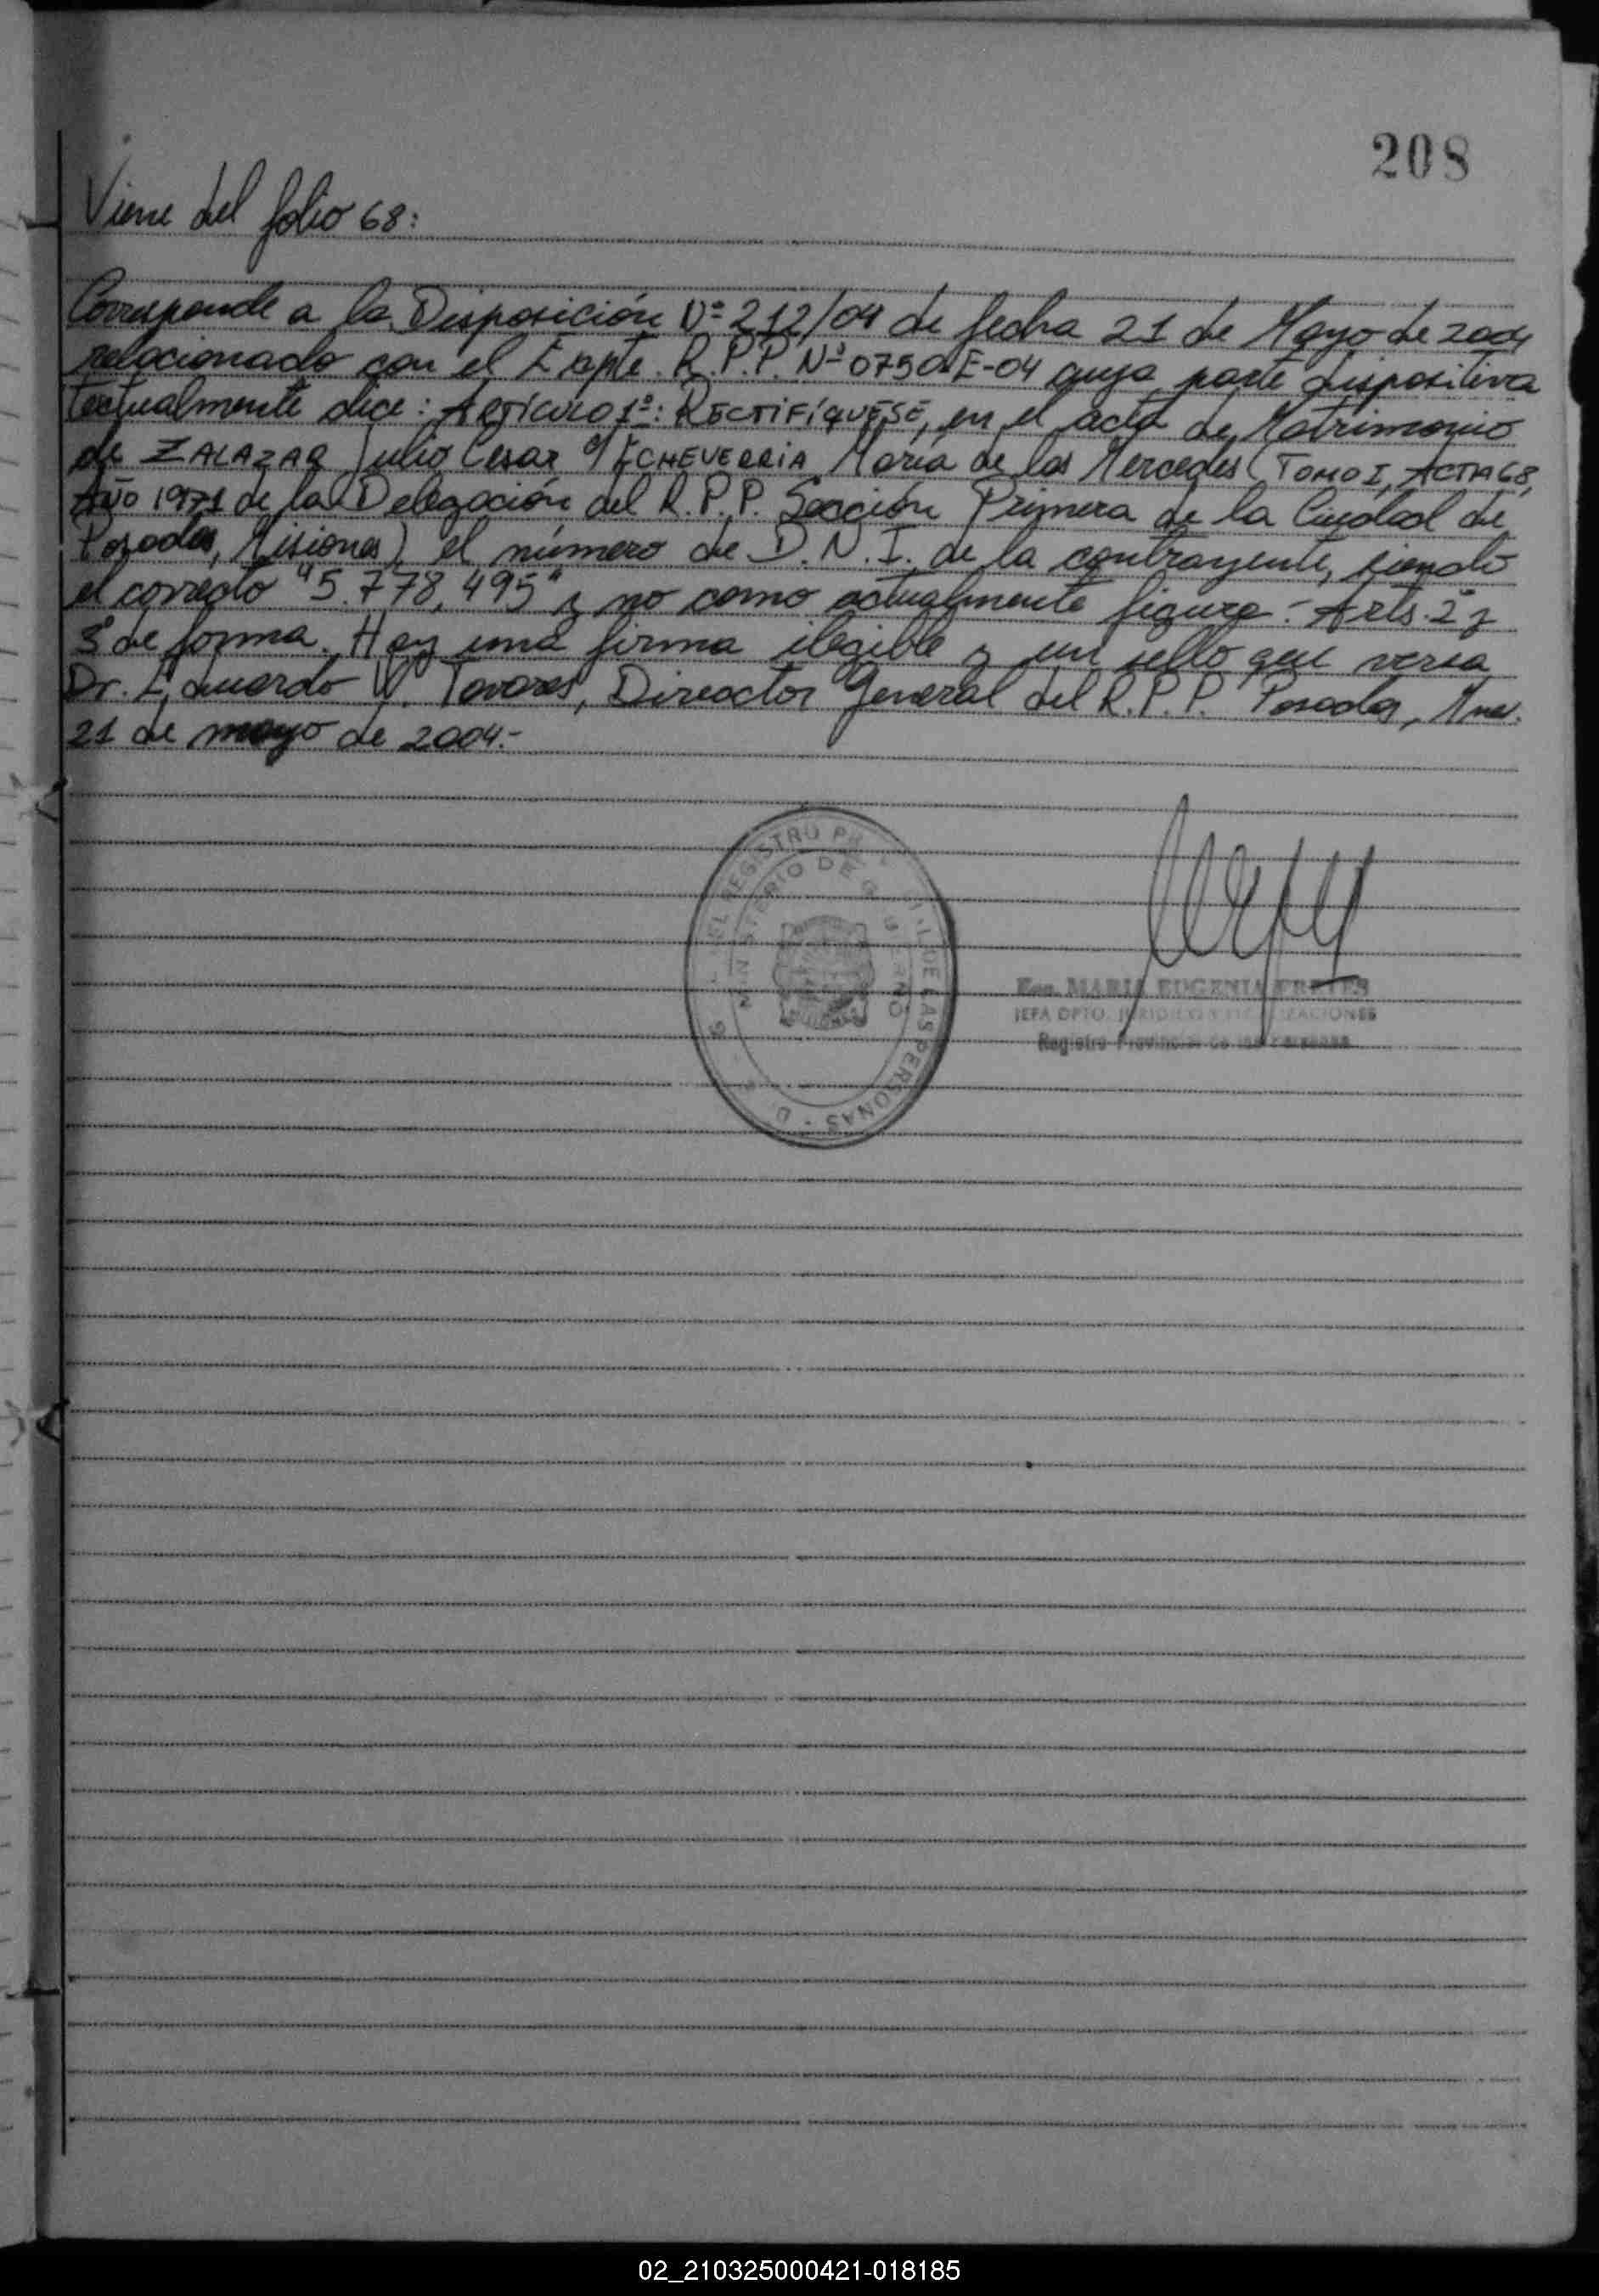 208
Viene del folio 68:
Corresponde a la Disposición Nº 212/04 de fecha 21 de Mayo de 2004
relacionado con el Expte. R.P.P. Nº 0750 E-04 cuya parte dispositiva
textualmente dice: ARTÍCULO 1º: RECTIFÍQUESE, en el acta de Matrimonio
de ZALAZAR Julio Cesar c/ ECHEVERRIA Maria de las Mercedes (TOMO I, ACTA 68,
AÑO 1971 de la Delegación del R.P.P. Sección Primera de la Ciudad de
Posadas, Misiones) el número de D.N.I. de la contrayente, siendo
el correcto "5.778,495" y no como actualmente figura.- Arts. 2º y
3º de forma. Hay una firma ilegible y un sello que versa
Dr. Eduardo Tavares, Director General del R.P.P. Posadas, Mnes.
21 de mayo de 2004.-
DEL REGISTRO DE LAS PERSONAS
MINISTERIO DE GOBIERNO
Esc. MARIA EUGENIA FRETES
JEFA DPTO. JURIDICO Y
Registro Provincial de las Personas
02_210325000421-018185